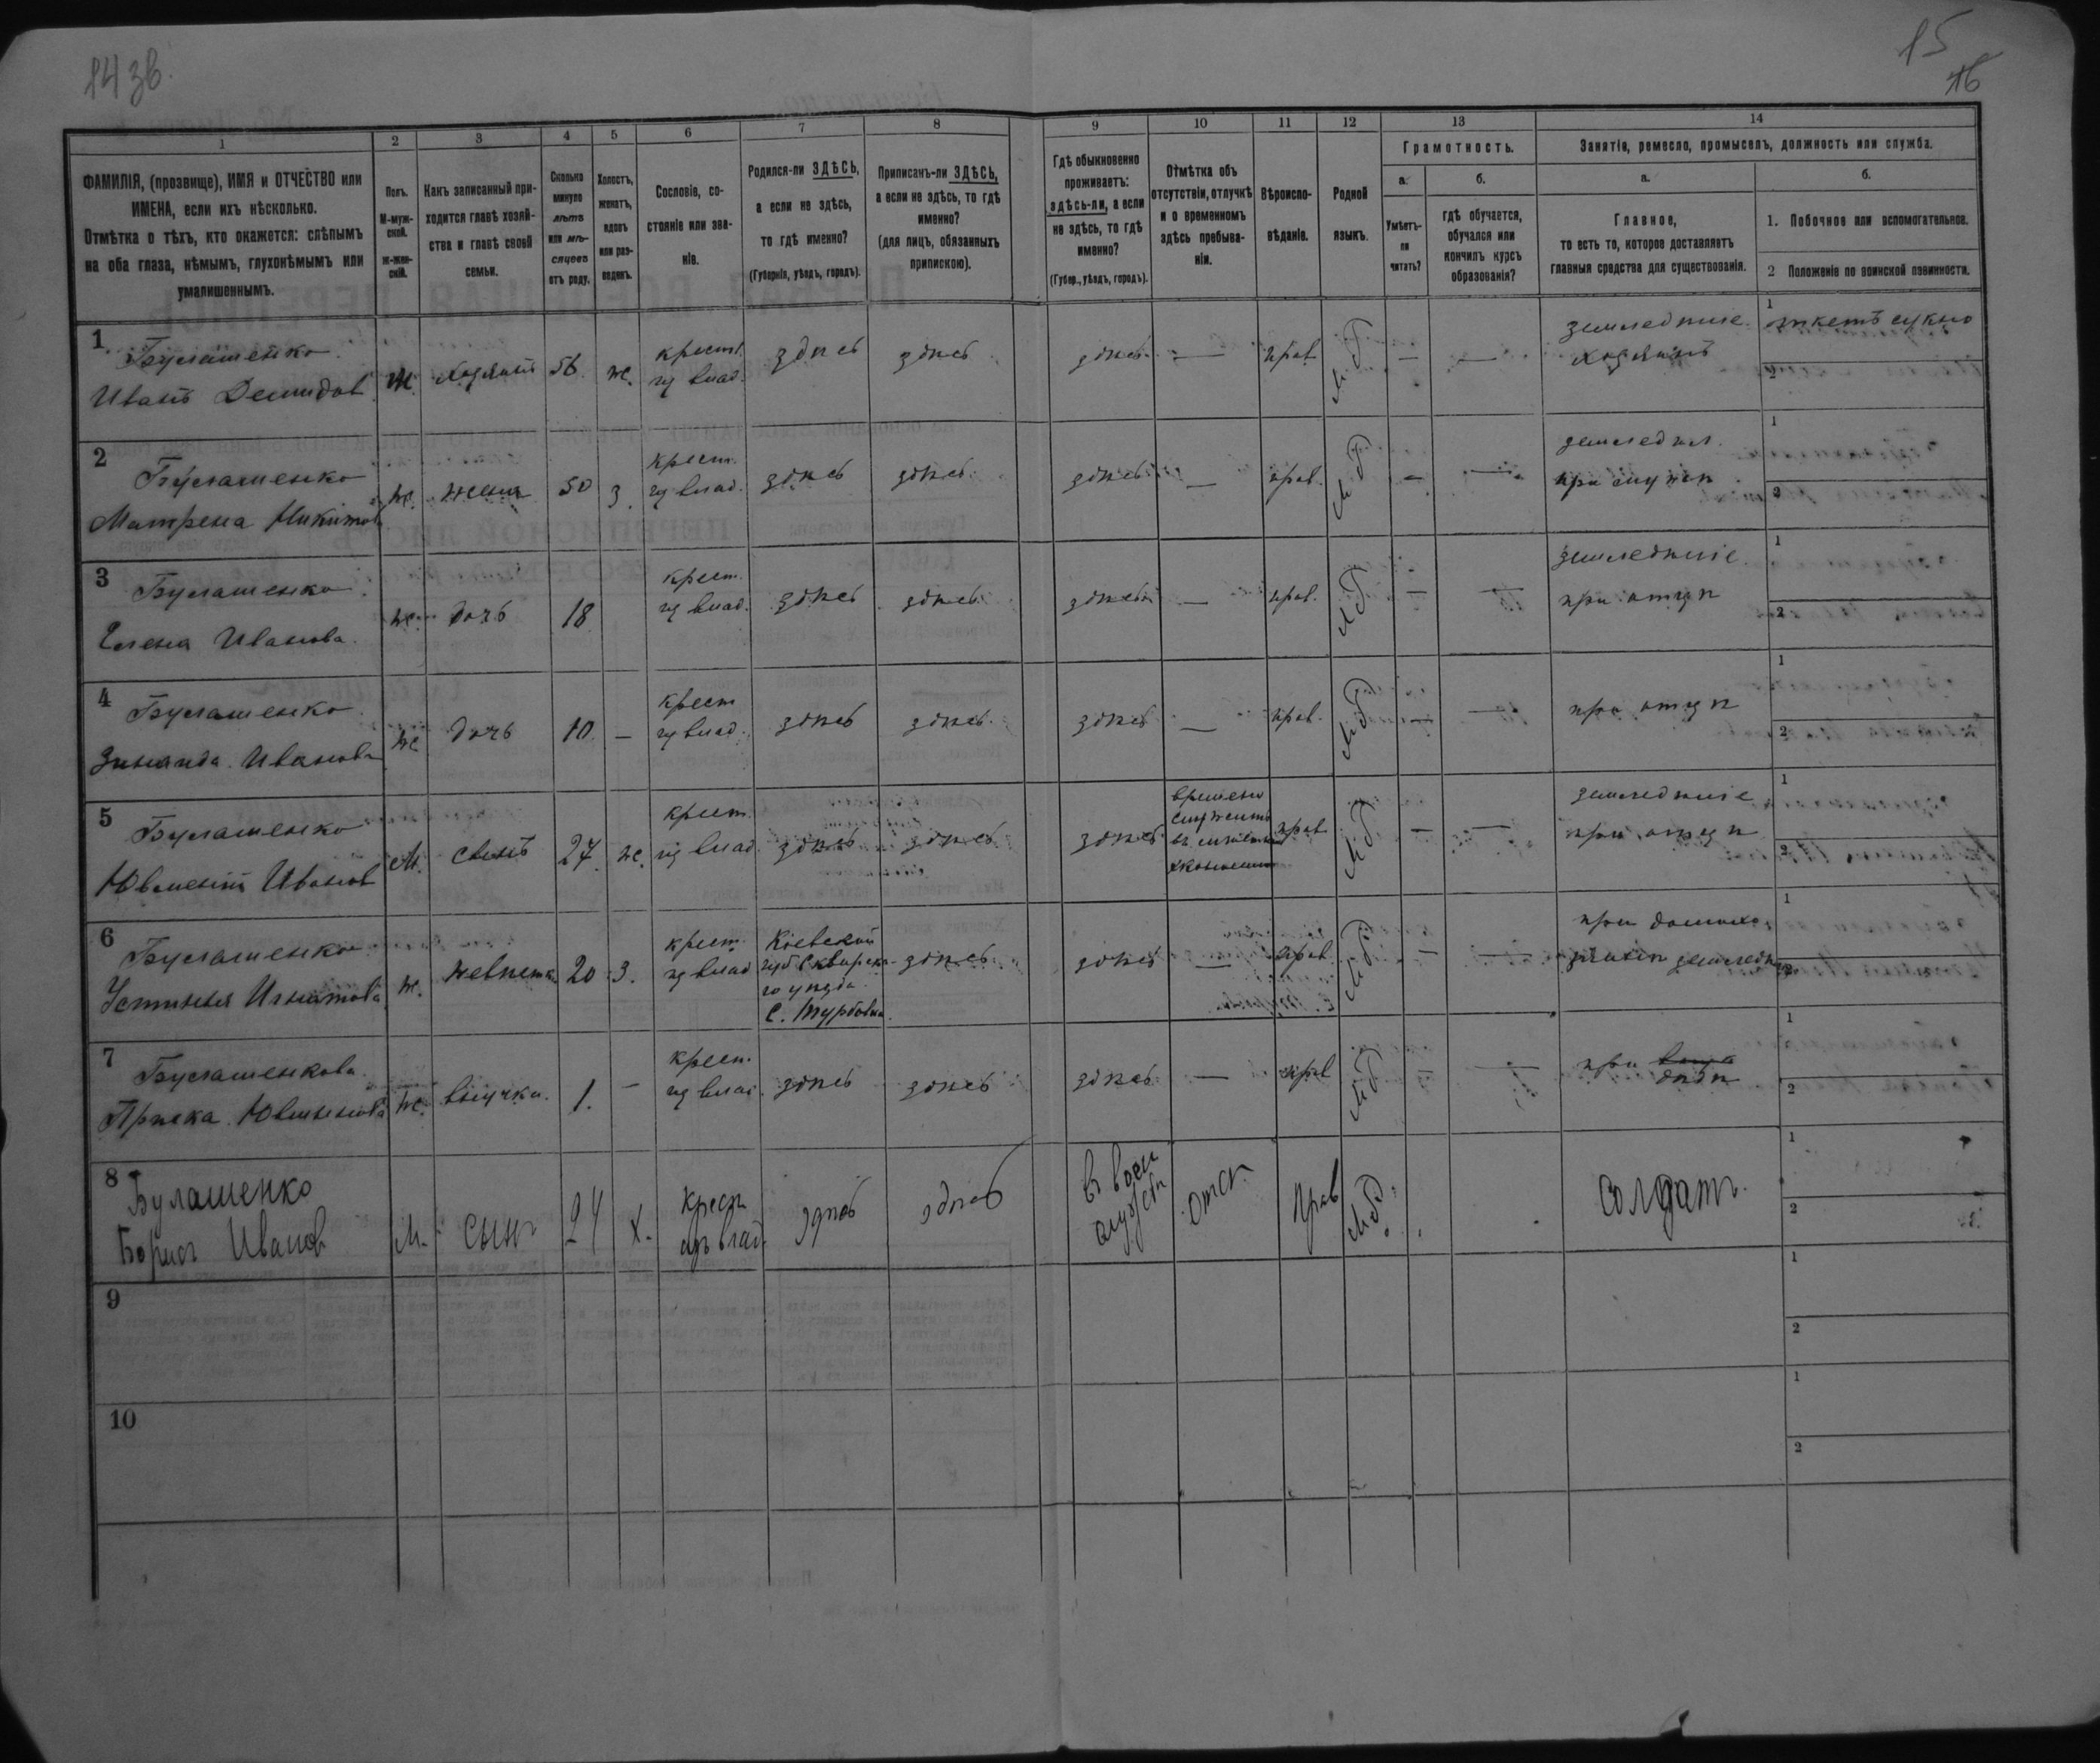 14 зв.
15
16
1
2
3
4
5
6
7
8
9
10
11
12
13
14
ФАМИЛІЯ, (прозвище), ИМЯ и ОТЧЕСТВО или
ИМЕНА, если ихъ нѣсколько.
Отмѣтка о тѣхъ, кто окажется: слѣпымъ
на оба глаза, нѣмымъ, глухонѣмымъ или
умалишеннымъ.
Полъ.
М-муж-
ской.
ж-жен-
скій.
Какъ записанный при-
ходится главѣ хозяй-
ства и главѣ своей
семьи.
Сколько
минуло
лѣтъ
или мѣ-
сяцевъ
отъ роду.
Холостъ,
женатъ,
вдовъ
или раз-
веденъ.
Сословіе, со-
стояніе или зва-
ніе.
Родился-ли ЗДѢСЬ,
а если не здѣсь,
то гдѣ именно?
(Губернія, уѣздъ, городъ).
Приписанъ-ли ЗДѢСЬ,
а если не здѣсь, то гдѣ
именно?
(для лицъ, обязанныхъ
припискою).
Гдѣ обыкновенно
проживаетъ:
здѣсь-ли, а если
не здѣсь, то гдѣ
именно?
(Губер., уѣздъ, городъ).
Отмѣтка объ
отсутствіи, отлучкѣ
и о временномъ
здѣсь пребыва-
ніи.
Вѣроиспо-
вѣданіе.
Родной
языкъ.
Грамотность.
а.
Умѣетъ-
ли
читать?
б.
гдѣ обучается,
обучался или
кончилъ курсъ
образованія?
Занятіе, ремесло, промыселъ, должность или служба.
а.
Главное,
то есть то, которое доставляетъ
главныя средства для существованія.
б.
1. Побочное или вспомогательное.
2 Положеніе по воинской повинности.
1
Булашенко
Иванъ Демидов
хозяинъ
56
ж.
крест.
из влад.
здѣсь
здѣсь
здѣсь
—
прав.
—
—
земледѣліе
хозяинъ
1
сукно
2
2
Булашенко
Матрена Никитова
ж.
жена
50
з.
крест.
из влад.
здѣсь
здѣсь
здѣсь
—
прав.
—
—
земледѣл.
при мужѣ
1
2
3
Булашенко
Елена Иванова
ж.
дочь
18
крест.
из влад.
здѣсь
здѣсь
здѣсь
—
прав.
—
—
земледѣліе
при отцѣ
1
2
4
Булашенко
Зинаида Иванова
ж.
дочь
10
—
крест
из влад.
здѣсь
здѣсь
здѣсь
—
прав.
—
—
при отцѣ
1
2
5
Булашенко
Иванов
М.
сынъ
27
ж.
крест.
из влад
здѣсь
здѣсь
здѣсь
времено
служитъ
прав
—
—
земледѣліе
при отцѣ
1
2
6
Булашенко
Устинья Игнатова
ж.
невѣстка
20
з.
крест.
из влад
Кіевской
губ Сквирска-
го уѣзда
с. Турбовка
здѣсь
здѣсь
—
прав
—
—
при
1
7
Булашенкова
ж.
внучка.
1.
—
крест.
из влад.
здѣсь
здѣсь
здѣсь
—
прав
—
—
при
дѣдѣ
1
2
8
Булашенко
Борисъ Иванов
М.
сынъ
24
х.
крест
изъ влад.
здѣсь
здѣсь
въ воен
службѣ
отст.
прав
солдатъ
1
2
9
1
2
10
1
2